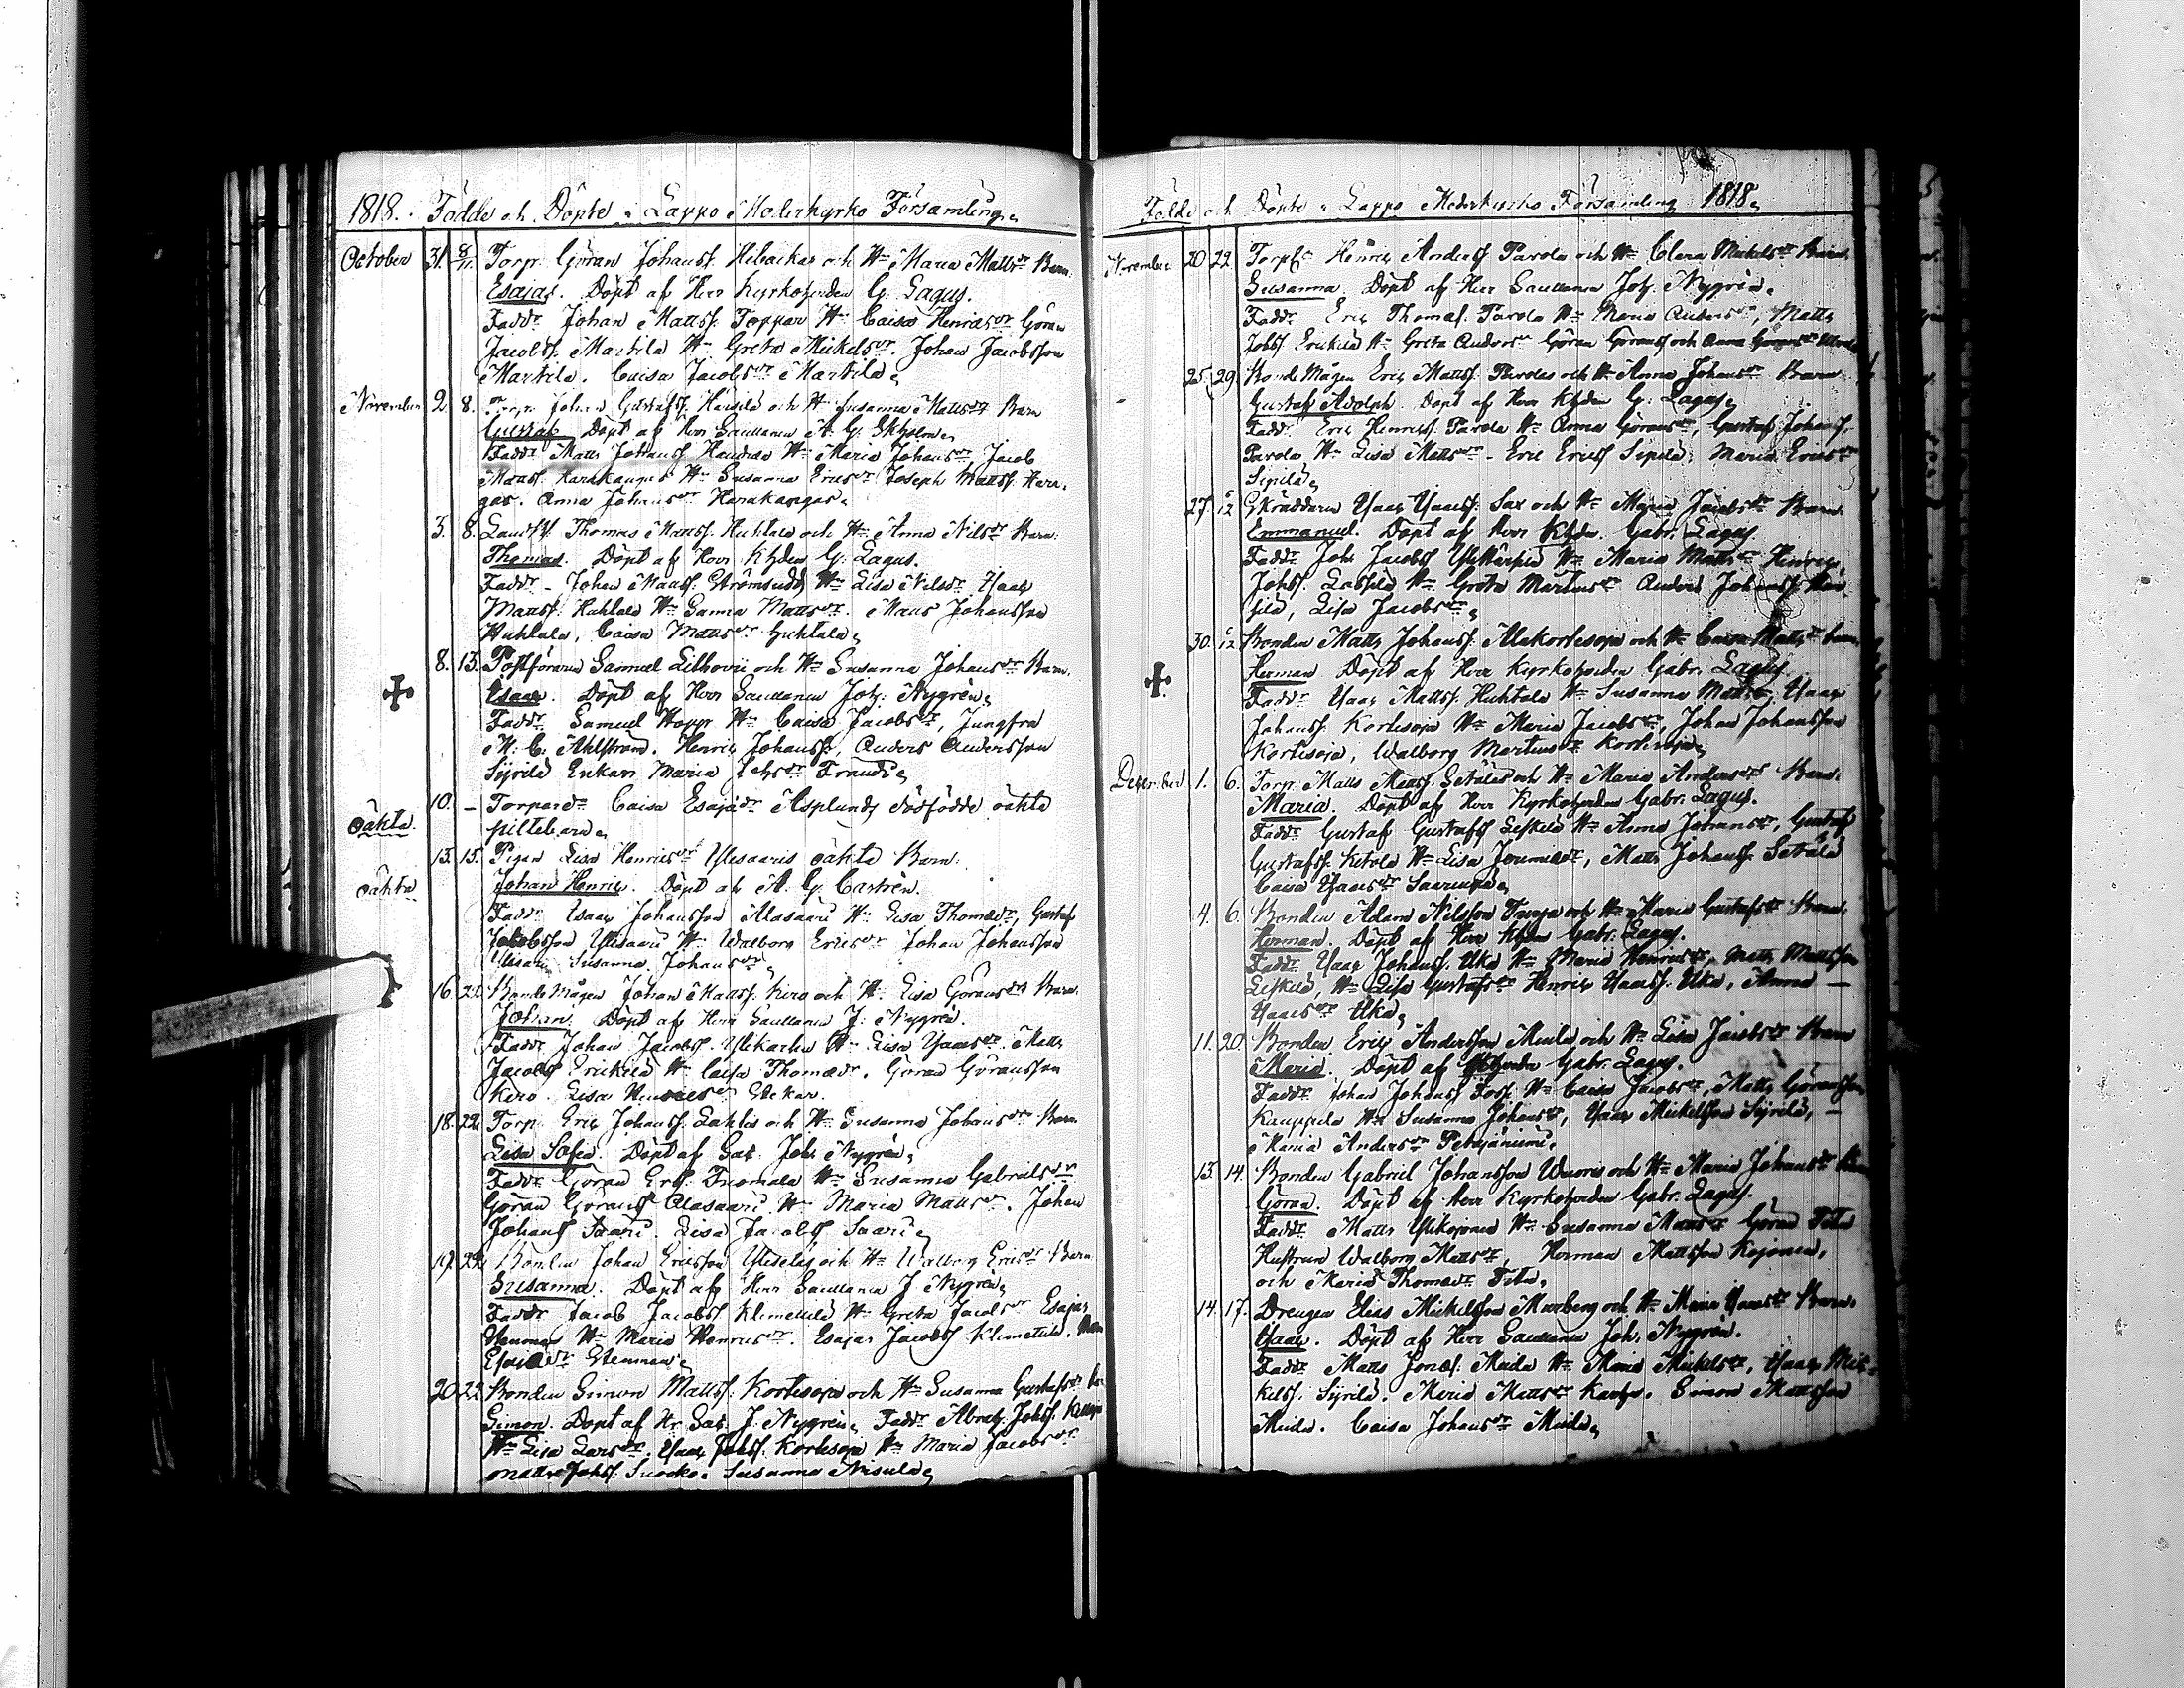 1818. Födde och Döpte i Lappo Moderkyrko Församling
October 31. 8/11. Torp. Göran Johanss. Hebackas och H. Maria Mattsdr Barn
Esajas. Döpt af Herr Kyrkoherden G. Lagus.
Faddr Johan Mattss. Toppar H. Caisa Henricsdr Göran
Jacobss. Martila H. Greta Mickelsdr. Johan Jacobsson
Martila. Caisa Jacobsdr Martila
November 2. 8. Torp. Johan Gustafss. och H. Susanna Mattsdr Barn
Gustaf Döpt af Herr Sacellanen A. G.
Faddr Matts Johanss. H. Maria Johansdr Jacob
Mattss. Harakangas H. Susanna Ericsdr Joseph Mattss. Hara-
gas. Anna Johansdr Harakangas
3. 8. Thomas Mattss. Huhtala och H. Anna Nilsdr Barn.
Thomas. Döpt af Herr Khden G. Lagus.
Faddr Johan H. Lisa Nilsdr Isaac
Mattss. Huhtala H. Sanna Mattsdr. Johansson
Huhtala, Caisa Mattsdr Huhtala
8. 15. Postföraren Samuel och H. Susanna Johansdr Barn.
Isaac. Döpt af Herr Sacellanen Joh. Nygrén
Faddr Samuel H. Caisa Jacobsdr, Jungfru
M. C. Ahlström. Henric Johanss., Anders Andersson
Sipilä Enkan Maria
10. – Caisa Esajædr Asplunds dödfödde oäkta
oäkta. piltebarn
13. 15. Pigan Lisa Henricsdr Ylisaaris oäkta Barn.
oäkta Johan Henric. Döpt af A. G. Castrén.
Faddr Isaac Johansson Alasaari H. Lisa Thomædr, Gustaf
Jakobsson Ylisaari H. Walborg Ericsdr Johan Johansson
Ylisaari Susanna Johansdr
16. 22. Bonde Mågen Johan Mattss. Kero och H. Lisa Göransdr Barn.
Johan. Döpt af Herr Sacellanen J. Nygrén.
Faddr Johan Jacobss. H. Lisa Isaacsdr. Matts
Jacobss Erickilä H. Caisa Thomædr. Göran Göransson
Kero. Lisa
18. 22. Torp. Eric Johanss. Lahtis och H. Susanna Johansdr Barn.
Lisa Sofia. Döpt af Sac. Joh. Nygrén
Faddr Göran Erss. Tuomala H. Susanna Gabrielsdr
Göran Göranss Alasaari H. Maria Mattsdr. Johan
Johanss Saari. Lisa Saari
17. 22. Bonden Johan Ericsson och H. Walborg Ericsdr Barn
Susanna. Döpt af Herr Sacellanen J. Nygrén
Faddr Jacob Jacobss Klemettilä H. Greta Jacobsdr Esajas
H. Maria Henricsdr. Esajas Jacobss Klemettilä.
20. 22. Bonden Simon Mattss. Kortesoja och H. Susanna Gustafsdr
Simon. Döpt af Hr. Sac. J. Nygrén. Faddr Abrah. Johss.
H. Lisa Larsdr. Isaac Johss. Kortesoja H. Maria Jacobsdr
Matts Johss. Susanna Nisula
Födde och Döpte i Lappo Moderkyrko Församling 1818
November 20 22. Henric Anderss Parola och H. Clara Mickelsdr Barn.
Susanna. Döpt af Herr Sacellanen Joh. Nygrén.
Faddr Eric Thomæs. Parola H. Maria Andersdr, Matts
Johss Erickilä H. Greta Andersdr Göran Göranss och Anna
25. 29. Bonde Mågen Eric Mattss. Parolas och H. Anna Johansdr Barn
Gustaf Adolph. Döpt af Herr Khden G. Lagus.
Fadd. Eric Henricss. Parola H. Anna Göransdr, Gustaf Johanss.
Parola H. Lisa Mattsdr. Eric Ericss Sipilä, Maria Ericsdr
Sipilä
27. 6/12 Skräddaren Isaac Isaacss. Sax och H. Maria Jacobsdr Barn.
Emmanuel. Döpt af Herr Khden Gabr. Lagus
Faddr Joh. Jacobss H. Maria Mattsdr Henric
Johss. H. Greta Martinsdr Anders Johanss.
Lisa Jacobsdr
30. 6/12 Bonden Matts Johanss. Alakortesoja och H. Caisa Mattsdr barn
Herman Döpt af Herr Kyrkoherden Gabr. Lagus.
Faddr Isaac Mattss. Huhtala H. Susanna Mattsdr, Isaac
Johanss. Kortesoja H. Maria Jacobsdr, Johan Johansson
Kortesoja, Walborg Martinsdr Kortesoja
December 1. 6. Torp. Matts Mattss. Setälä och H. Maria Andersdr Barn.
Maria. Döpt af Herr Kyrkoherden Gabr. Lagus.
Faddr Gustaf Gustafss H. Anna Johansdr, Gustaf
Gustafss. Ketola H. Lisa Jeremiædr, Matts Johanss. Setälä
Caisa Isaacsdr
4. 6. Bonden Adam Nilsson och H. Maria Gustafsdr Barn.
Herman. Döpt af Herr Khden Gabr. Lagus.
Faddr Isaac Johanss. Uka H. Maria Henricsdr, Matts Mattsson
H. Lisa Gustafsdr Henric Isaacss. Uka, Anna –
Isaacsdr Uka
11. 20. Bonden Eric Andersson Muila och H. Lisa Jacobsdr Barn
Maria. Döpt af Gabr. Lagus.
Faddr Johan Johanss H. Caisa Jacobsdr, Matts Göransson
Kauppila H. Susanna Johansdr, Isaac Mickelsson Sipilä, –
Maria Andersdr
13. 14. Bonden Gabriel Johansson Wuoris och H. Maria Johansdr
Göran. Döpt af Herr Kyrkoherden Gabr. Lagus.
Faddr Matts H. Susanna Mattsdr Göran
Hustrun Walborg Mattsdr, Herman Mattsson Kojonen,
och Maria Thomædr
14. 17. Drengen Elias Mickelsson Murberg och H. Maria Isaacsdr Barn.
Isaac. Döpt af Herr Sacellanen Joh. Nygrén.
Faddr Matts Jonæs. Muila H. Maria Mickelsdr, Isaac Mic-
kelss. Sipilä. Maria Mattsdr Simon Mattsson
Muila. Caisa Johansdr Muila